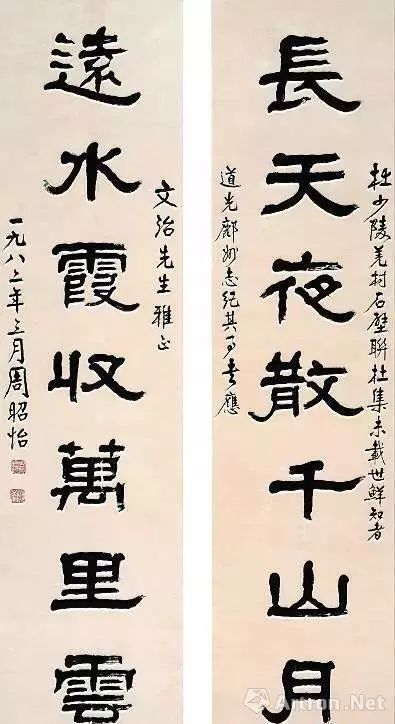 長天夜散千山月
杜少陵羌村石壁聯杜集未載世鮮知者
道光鄜州志紀其事書應
文治先生雅正
遠水霞收萬里雲
一九八二年三月周昭怡
Artron.Net